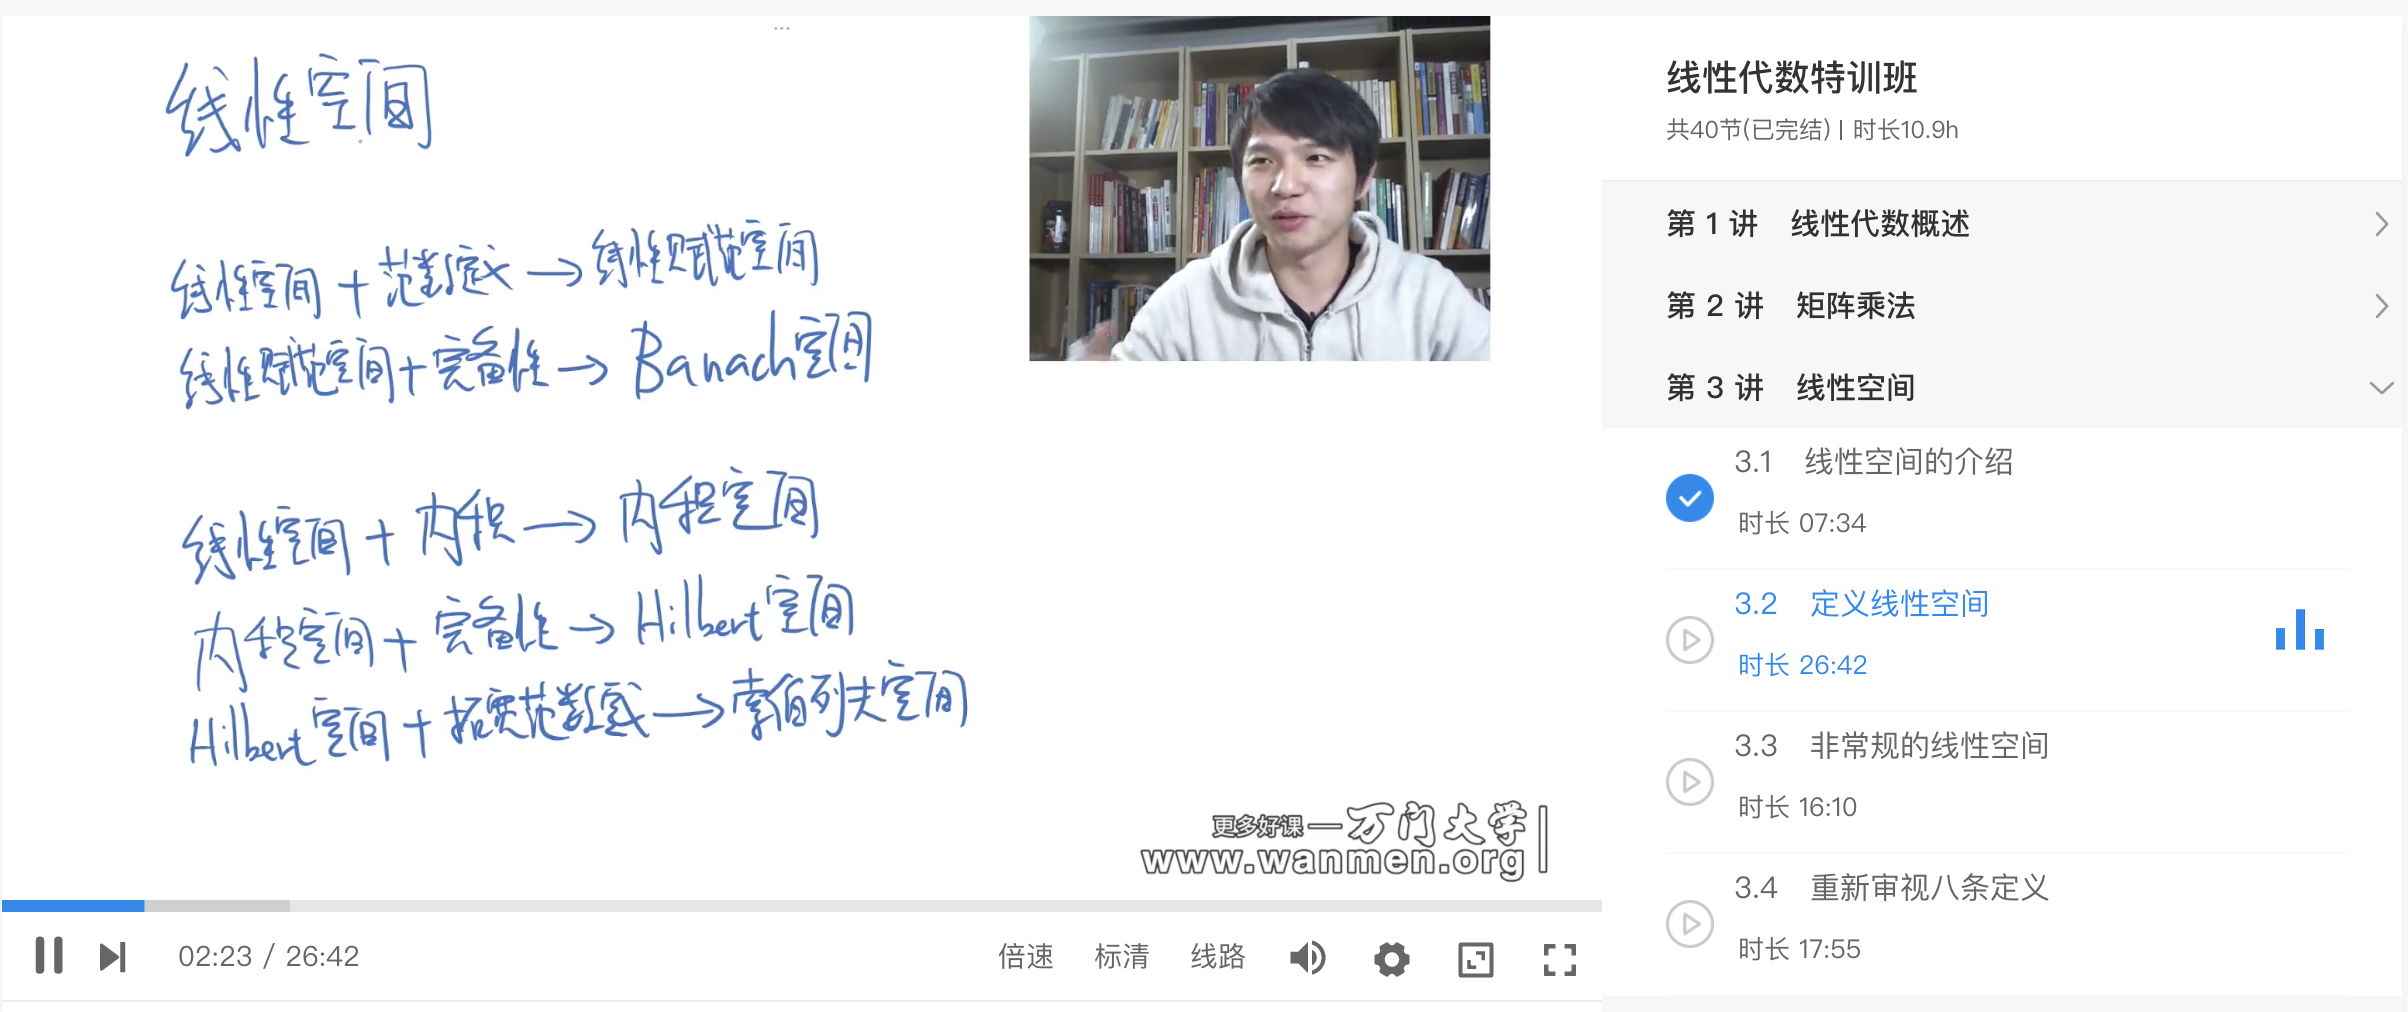 线性空间
线性空间 + 范数定义 → 线性赋范空间
线性赋范空间 + 完备性 → Banach空间
线性空间 + 内积 → 内积空间
内积空间 + 完备性 → Hilbert空间
Hilbert空间 + 拓宽范数定义 → 索伯列夫空间
更多好课—万门大学
www.wanmen.org
02:23 / 26:42
倍速 标清 线路
线性代数特训班
共40节(已完结) | 时长10.9h
第 1 讲 线性代数概述
第 2 讲 矩阵乘法
第 3 讲 线性空间
3.1 线性空间的介绍
时长 07:34
3.2 定义线性空间
时长 26:42
3.3 非常规的线性空间
时长 16:10
3.4 重新审视八条定义
时长 17:55